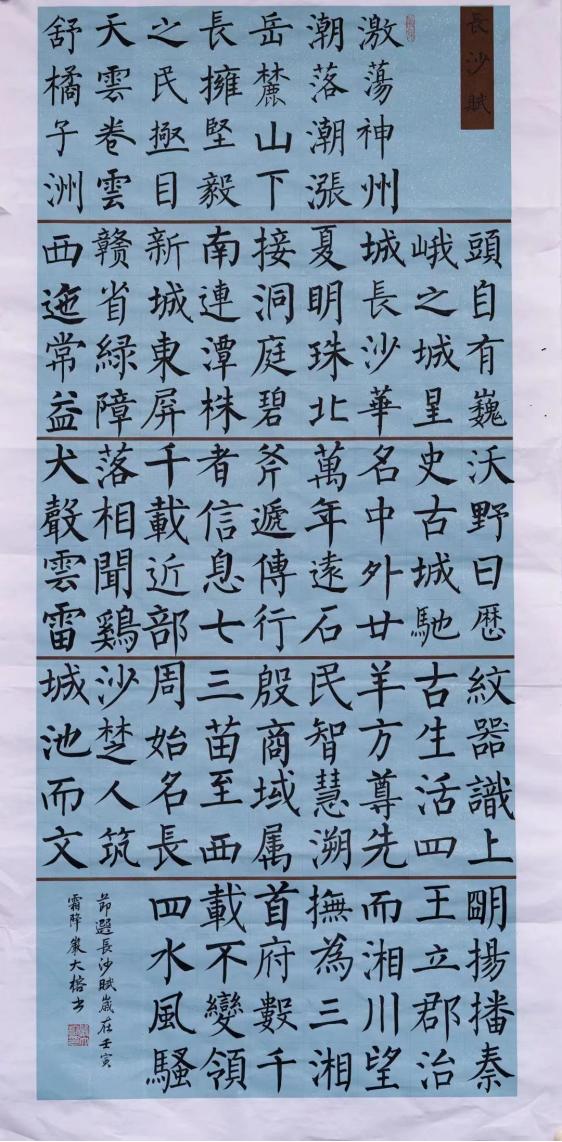 長沙賦
激蕩神州
潮落潮漲
岳麓山下
長擁堅毅
之民極目
天雲卷雲
舒橘子洲
頭自有巍
峨之城星
城長沙華
夏明珠北
接洞庭碧
南連潭株
新城東屏
贛省綠障
西迤常益
沃野曰歷
史古城馳
名中外廿
萬年遠石
斧遞傳行
者信息七
千載近部
落相聞鷄
犬聲雲雷
紋器識上
古生活四
羊方尊先
民智慧溯
殷商域属
三苗至西
周始名長
沙楚人筑
城池而文
朙揚播秦
王立郡治
而湘川望
撫為三湘
首府數千
載不變領
四水風騷
節選長沙賦歲在壬寅
霜降嚴大榕书